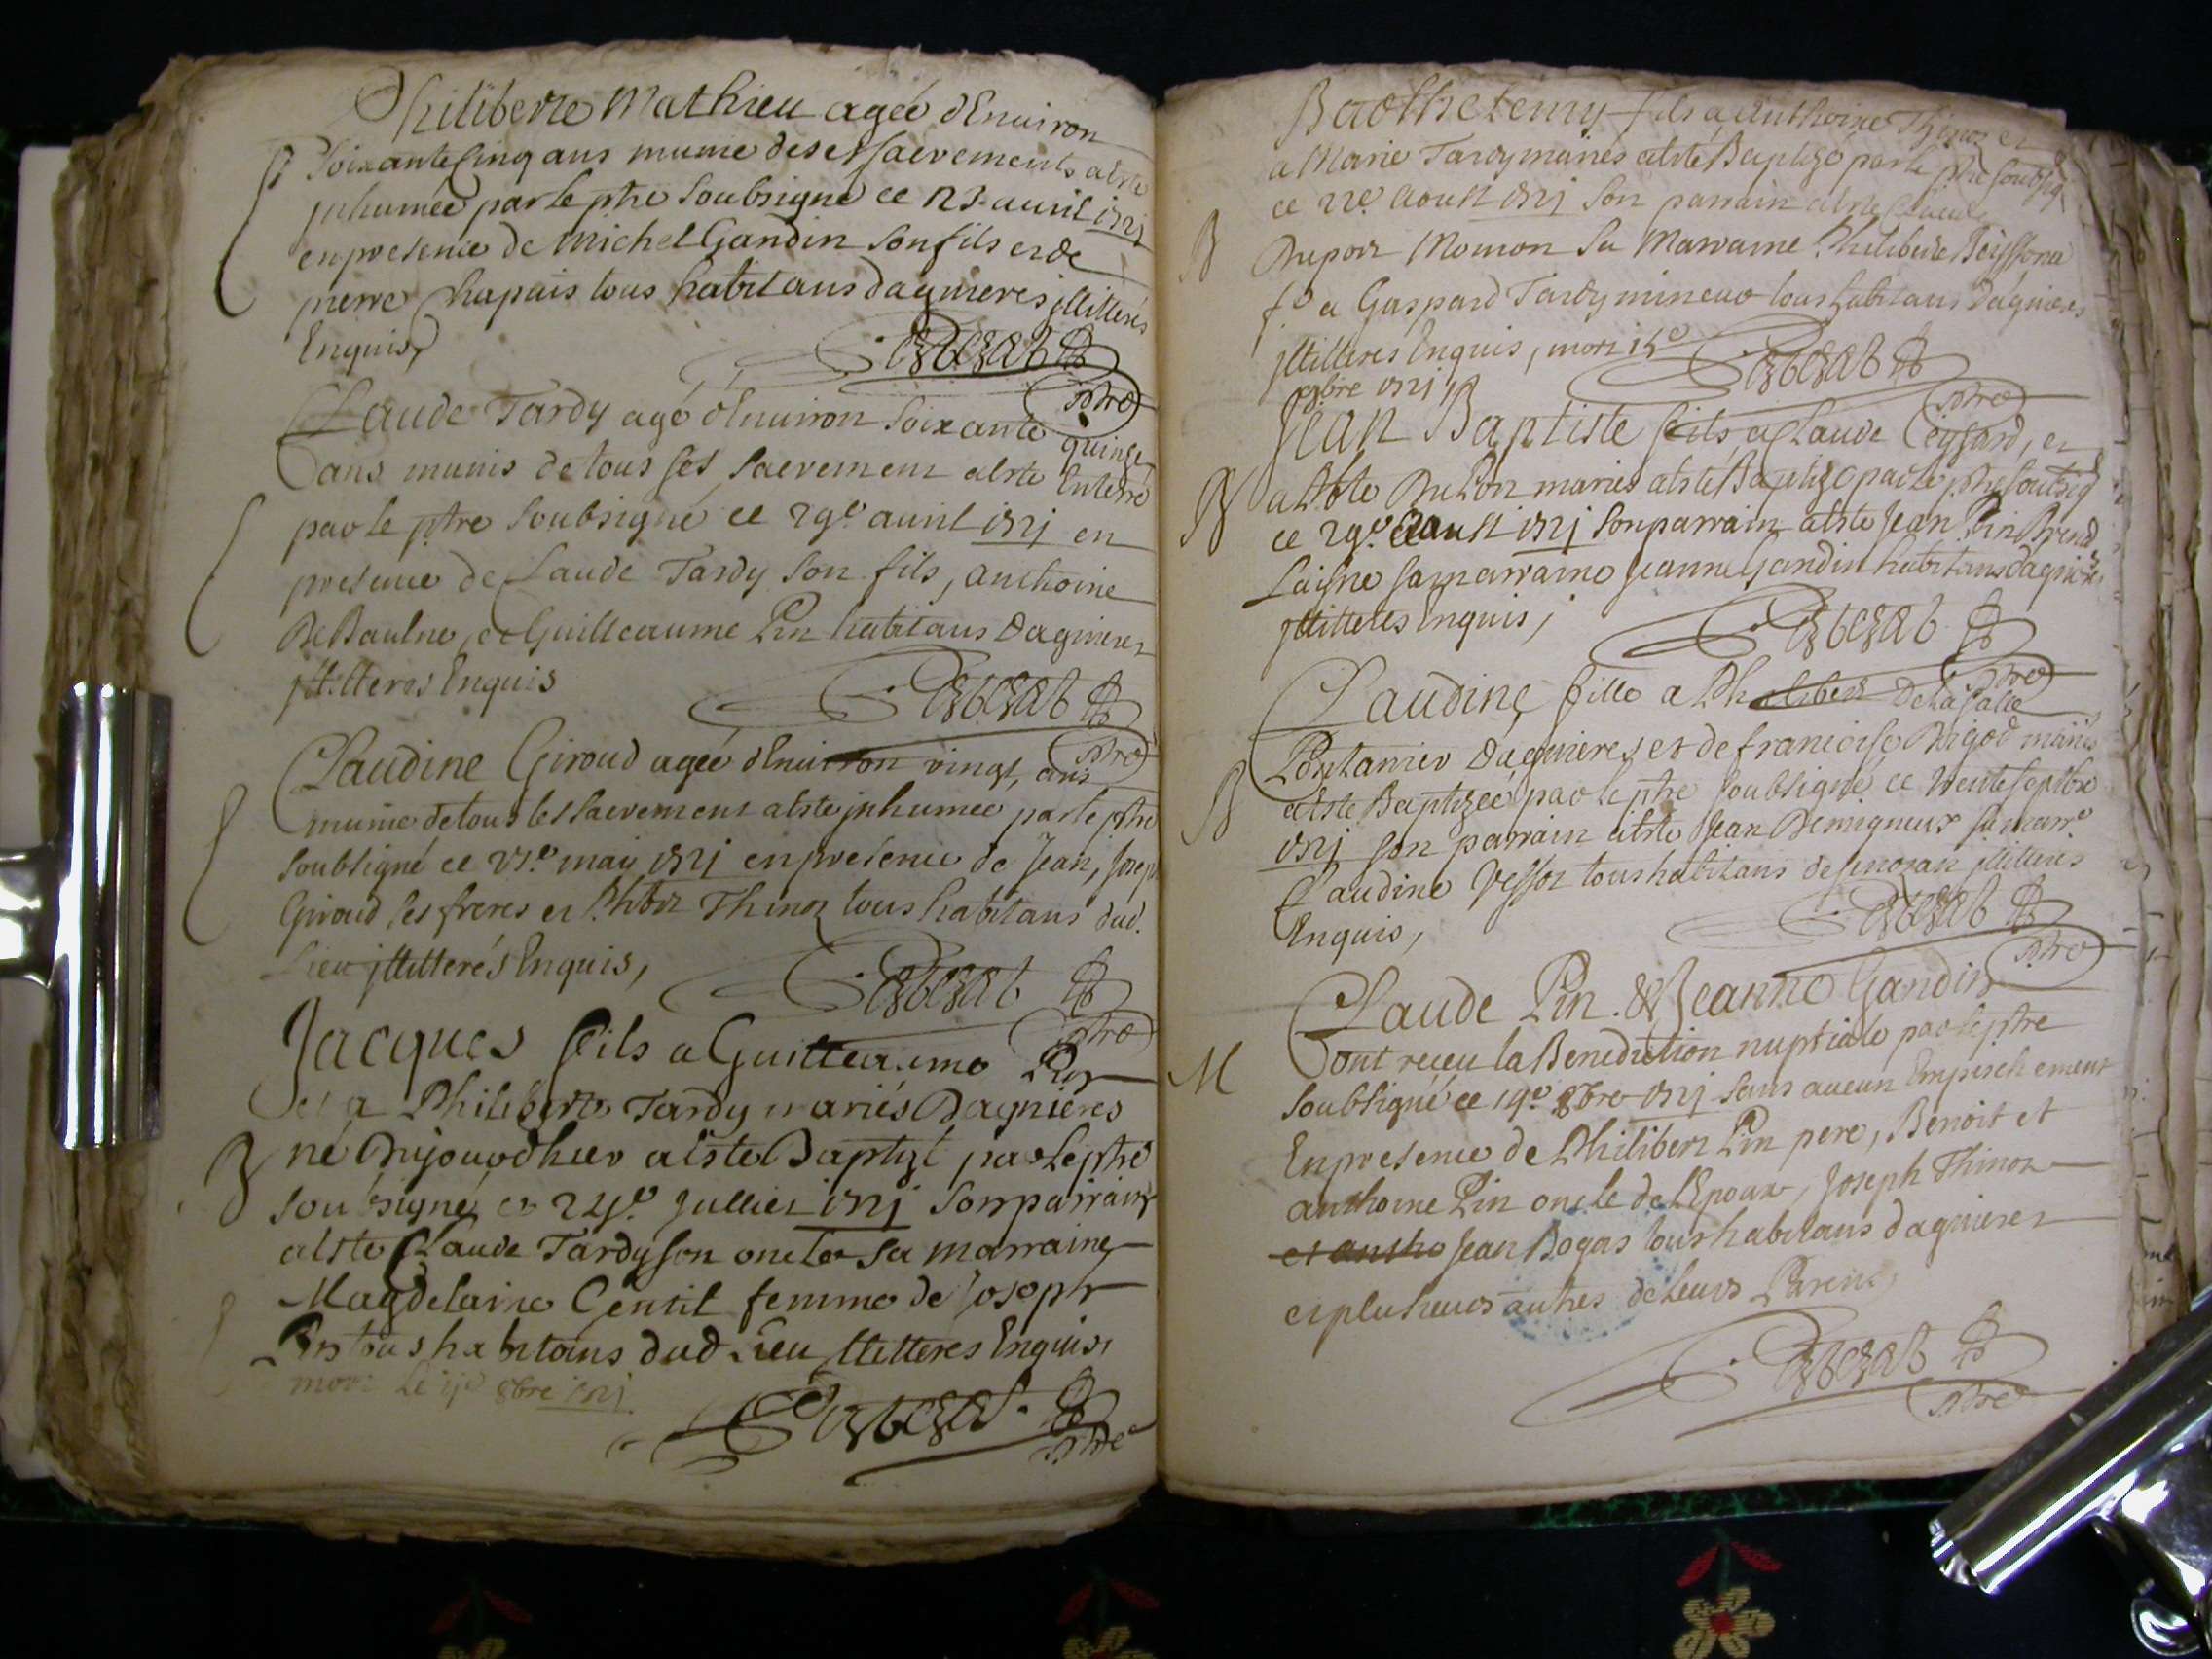 Philiberte Mathieu agée d'Enuiron
Soixante Cinq ans munie de ses sacrements a este
inhumée par le ptre soubsigné ce 23 auril 1721
en presence de Michel Gandin son fils et de
pierre Chapuis tous habitans dagnieres illitterés
Enquis,
ptre
Claude Tardy agé d'Enuiron Soixante quinze
ans munis de tous ses sacrement a este Enterré
par le ptre soubsigné ce 29e auril 1721 en
presence de Claude Tardy son fils, anthoine
DeBaulne, et Guilleaume Pin habitans Dagnieres
illitterés Enquis
ptre
Claudine Giroud agée d'Enuiron vingt ans
munie de tous les sacrement a este inhumée par le ptre
soubsigné ce may 1721 en presence de Jean, Joseph
Giroud ses freres et Phibert Thinot tous habitans dud.
lieu illitterés Enquis,
ptre
Jacques fils a Guilleaume Pin
et a Philiberte Tardy mariés Dagnieres
B né Aujourdhuy a este Baptizé par le ptre
soubsigné ce 24e Juillet 1721 son parrain
a este Claude Tardy son oncle sa marraine
Magdelaine Gentil femme de Joseph
Pin tous habitans dud. lieu illitterés Enquis,
mort le 8bre 1721
ptre
Barthelemy fils a Anthoine Thinot et
a Marie Tardy mariés a este Baptizé par le ptre soubsig
ce 22e Aoust 1721 son parrain a este Claude
B Dupon Momon sa Marraine Philiberte
fe a Gaspard Tardy mineur tous habitans Dagnieres
illitterés Enquis, mort 15e
9bre 1721
ptre
Jean Baptiste fils a Claude et
B a mariés a este Baptizé par le ptre soubsig
ce 29e Aoust 1721 son parrain a este Jean Pin
Laisne sa marraine Jeanne Gandin habitans dagnieres
illitterés Enquis,
ptre
Claudine fille a Philibert De La Salle
Pontanier Dagnieres et de francoise Rigod mariés
B a este Baptizée par le ptre soubsigné ce trente septbre
1721 son parrain a este Jean Demigneux sa marre
Claudine tous habitans de illitterés
Enquis,
ptre
Claude Pin & Jeanne Gandin
M ont receu la Benediction nuptiale par le ptre
soubsigné ce 19e 8bre 1721 sans aucun Empeschement
En presence de Philibert Pin pere, Benoit et
anthoine Pin oncle de l'Epoux, Joseph Thinot
et antho Jean Bogas tous habitans dagnieres
et plusieurs autres de leurs Parens,
ptre